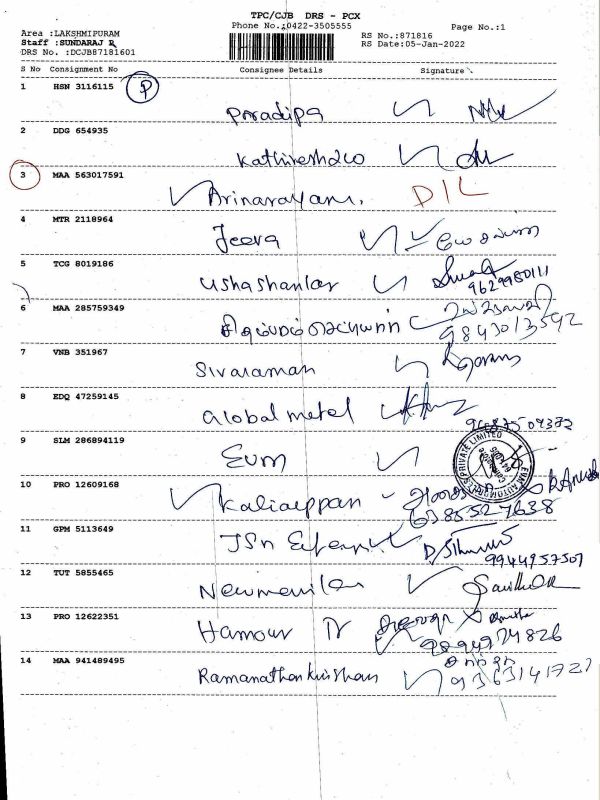 TPC/CJB DRS - PCX
Phone No.:0422-3505555 Page No.:1
Area :LAKSHMIPURAM RS No.:871816
Staff :SUNDARAJ R RS Date:05-Jan-2022
DRS No. :DCJB87181601
S No Consignment No Consignee Details Signature
1 HSN 3116115 P
Pradipa
2 DDG 654935
3 MAA 563017591
Arinarayani. DIL
4 MTR 2118964
Jeeva
5 TCG 8019186
Ushashankar
9629980111
6 MAA 285759349
9843013592
7 VNB 351967
Sivaraman
8 EDQ 47259145
Global metal
9 SLM 286894119
EVM
10 PRO 12609168
Kaliappan
6385527638
11 GPM 5113649
JSn
9944957507
12 TUT 5855465
13 PRO 12622351
Hamour
9894974826
14 MAA 941489495
Ramanathan Krishnan 9363141727